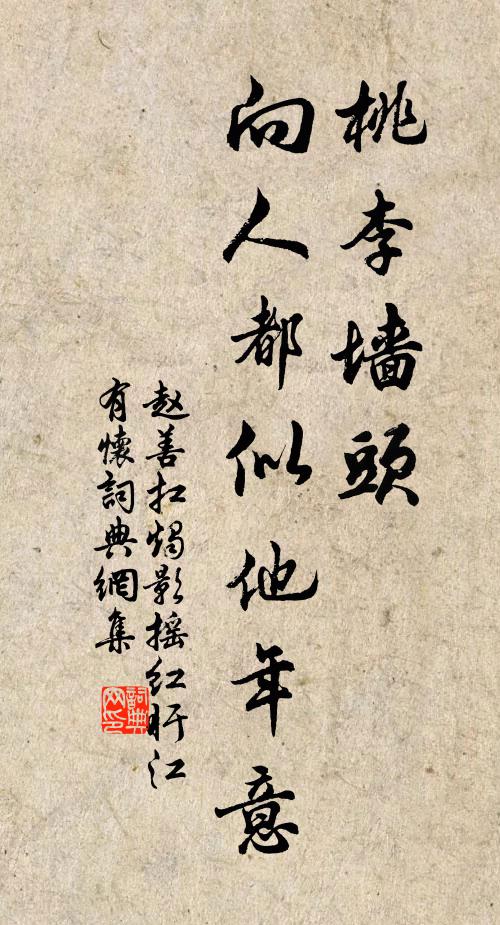 桃李墙頭
向人都似他年意
赵善扛燭影摇红盱江
有懷詞典網集
詞典网印